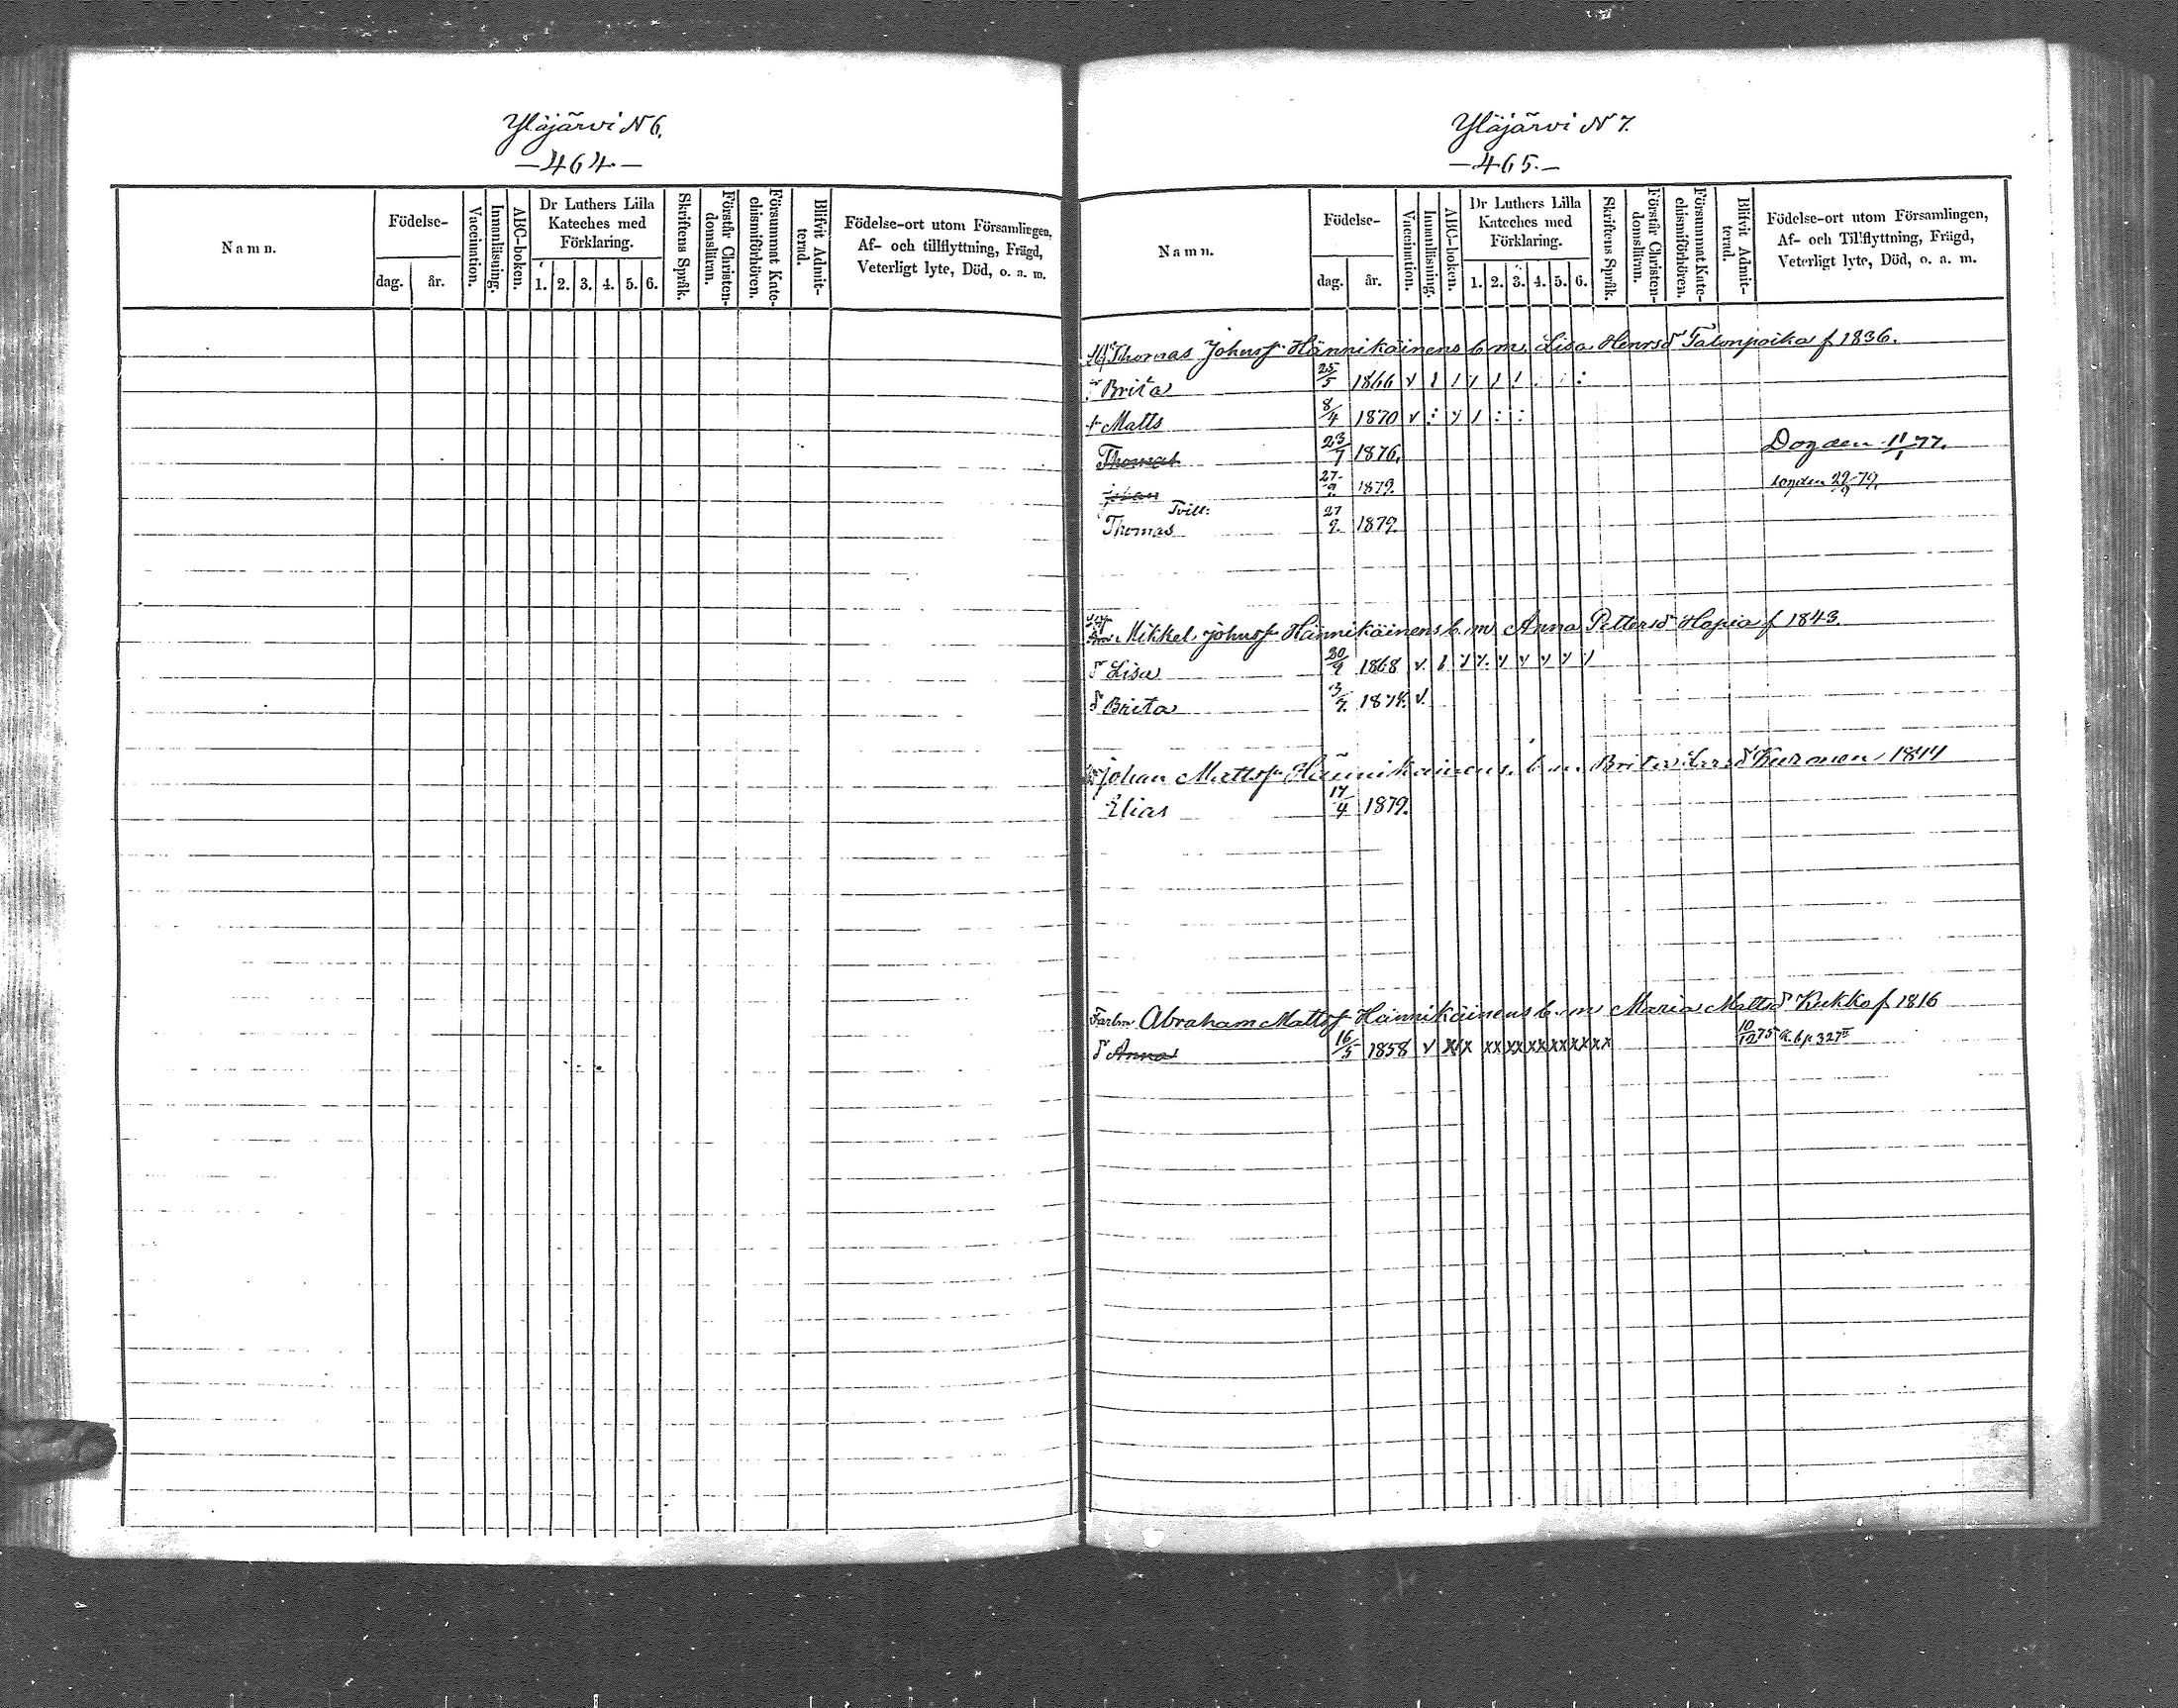 Yläjärvi N 6.
— 464. —
Namn.
Födelse-
dag.
år.
Vaccination.
Innanläsning.
ABC-boken.
Dr Luthers Lilla
Kateches med
Förklaring.
1. 2. 3. 4. 5. 6.
Skriftens Språk.
Förstår Christen-
domsläran.
Försummat Kate-
chismiförhören.
Blifvit Admit-
terad.
Födelse-ort utom Församlingen,
Af- och tillflyttning, Frägd,
Veterligt lyte, Död, o. a. m.
Yläjärvi N 7.
— 465. —
Namn.
Födelse-
dag.
år.
Vaccination.
Innanläsning.
ABC-boken.
Dr Luthers Lilla
Kateches med
Förklaring.
1. 2. 3. 4. 5. 6.
Skriftens Språk.
Förstår Christen-
domsläran.
Försummat Kate-
chismiförhören.
Blifvit Admit-
terad.
Födelse-ort utom Församlingen,
Af- och Tillflyttning, Frägd,
Veterligt lyte, Död, o. a. m.
Thomas Johnsf Hännikäinens b. m. Lisa Henrsd Talonpoika f 1836.
Brita 25/5 1866 v
Matts 8/4 1870 v
Thomas 23/7 1876. Dog den 11/1 77.
Johan 27/9. 1879. Dog den 29/9 79.
Tvill:
Thomas 27/9. 1879.
Mikkel Johnsf Hännikäinens b. m Anna Pettersd Hapia f 1843.
d Lisa 20/9 1868 v
d Brita 3/7. 1874. v.
Johan Mattsf Hännikäinens b. m. Brita Larsd Kuronen 1844
Elias 17/4 1879.
Farbr Abraham Mattsf Hännikäinens b. m Maria Mattsd Kukko f. 1816
d Anna 16/5 1858 v xxx xx xx xx xx xx xx 10/12 75 K. b. p. 327 II